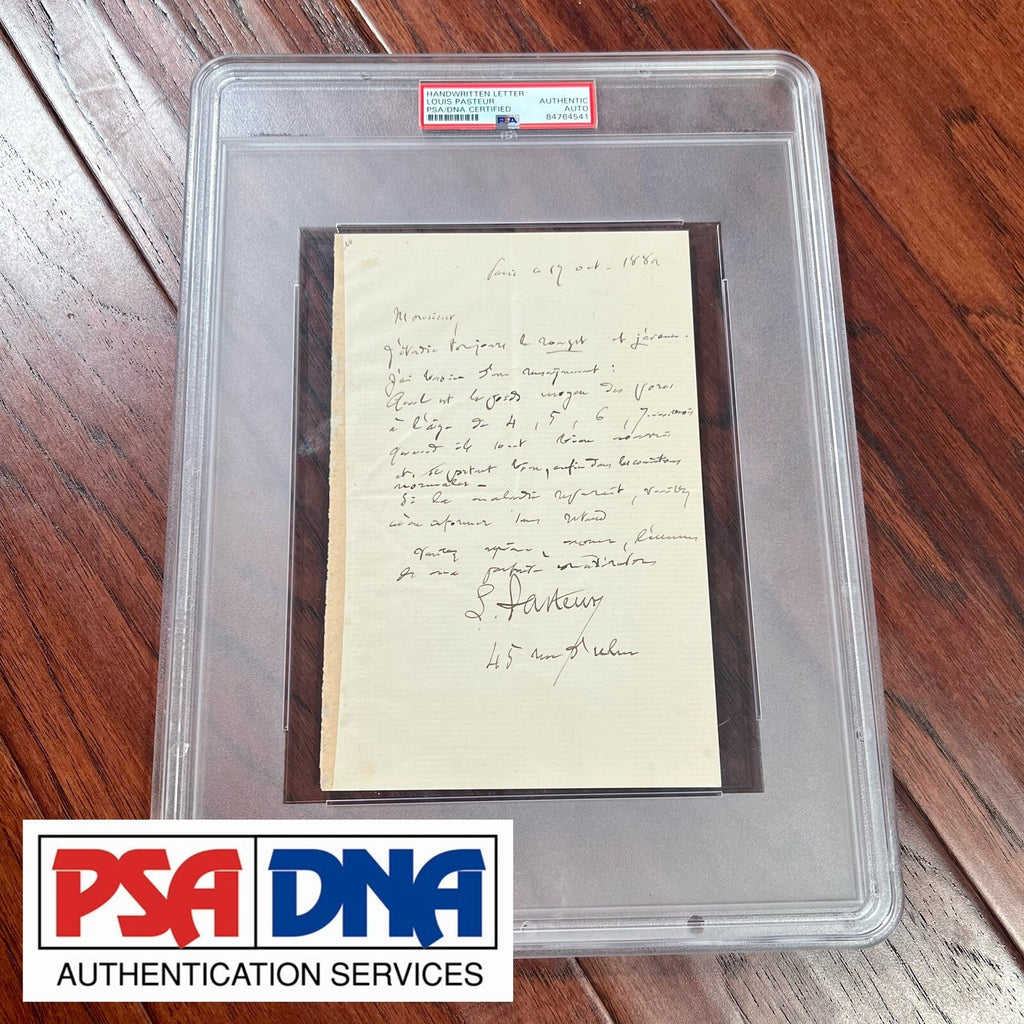 HANDWRITTEN LETTER
LOUIS PASTEUR
PSA/DNA CERTIFIED
AUTHENTIC
AUTO
84764541
PSA
Paris ce 17 oct. 1882
Monsieur,
J'étudie toujours le rouget et j'avance.
J'ai besoin d'un renseignement :
Quel est le poids moyen des porcs
à l'âge de 4, 5, 6, 7 mois
quand ils sont bien nourris
et se portent bien, enfin dans les conditions
normales –
Si la maladie reparait, veuillez
m'en informer sans retard
Veuillez agréer, monsieur, l'assurance
de ma parfaite considération
L. Pasteur
45 rue d'Ulm
PSA DNA
AUTHENTICATION SERVICES